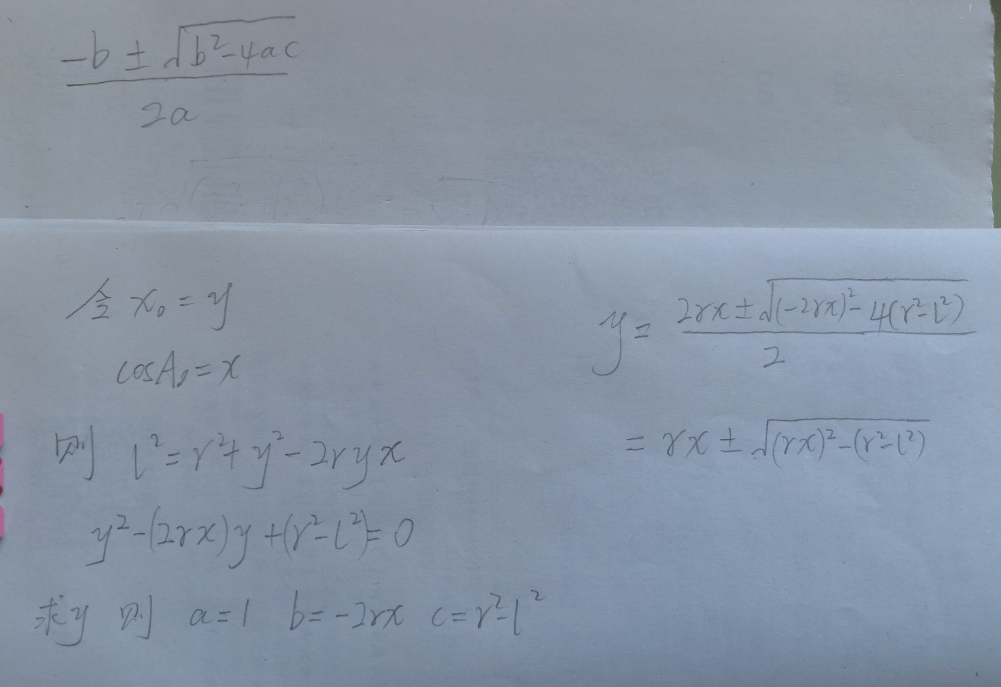 -b ± √(b²-4ac)
2a
令 x₀ = y
cosA₀ = x
则 l² = r² + y² - 2ryx
y² - (2rx)y + (r² - l²) = 0
求y 则 a = 1 b = -2rx c = r² - l²
y = (2rx ± √((-2rx)² - 4(r² - l²))) / 2
= rx ± √((rx)² - (r² - l²))